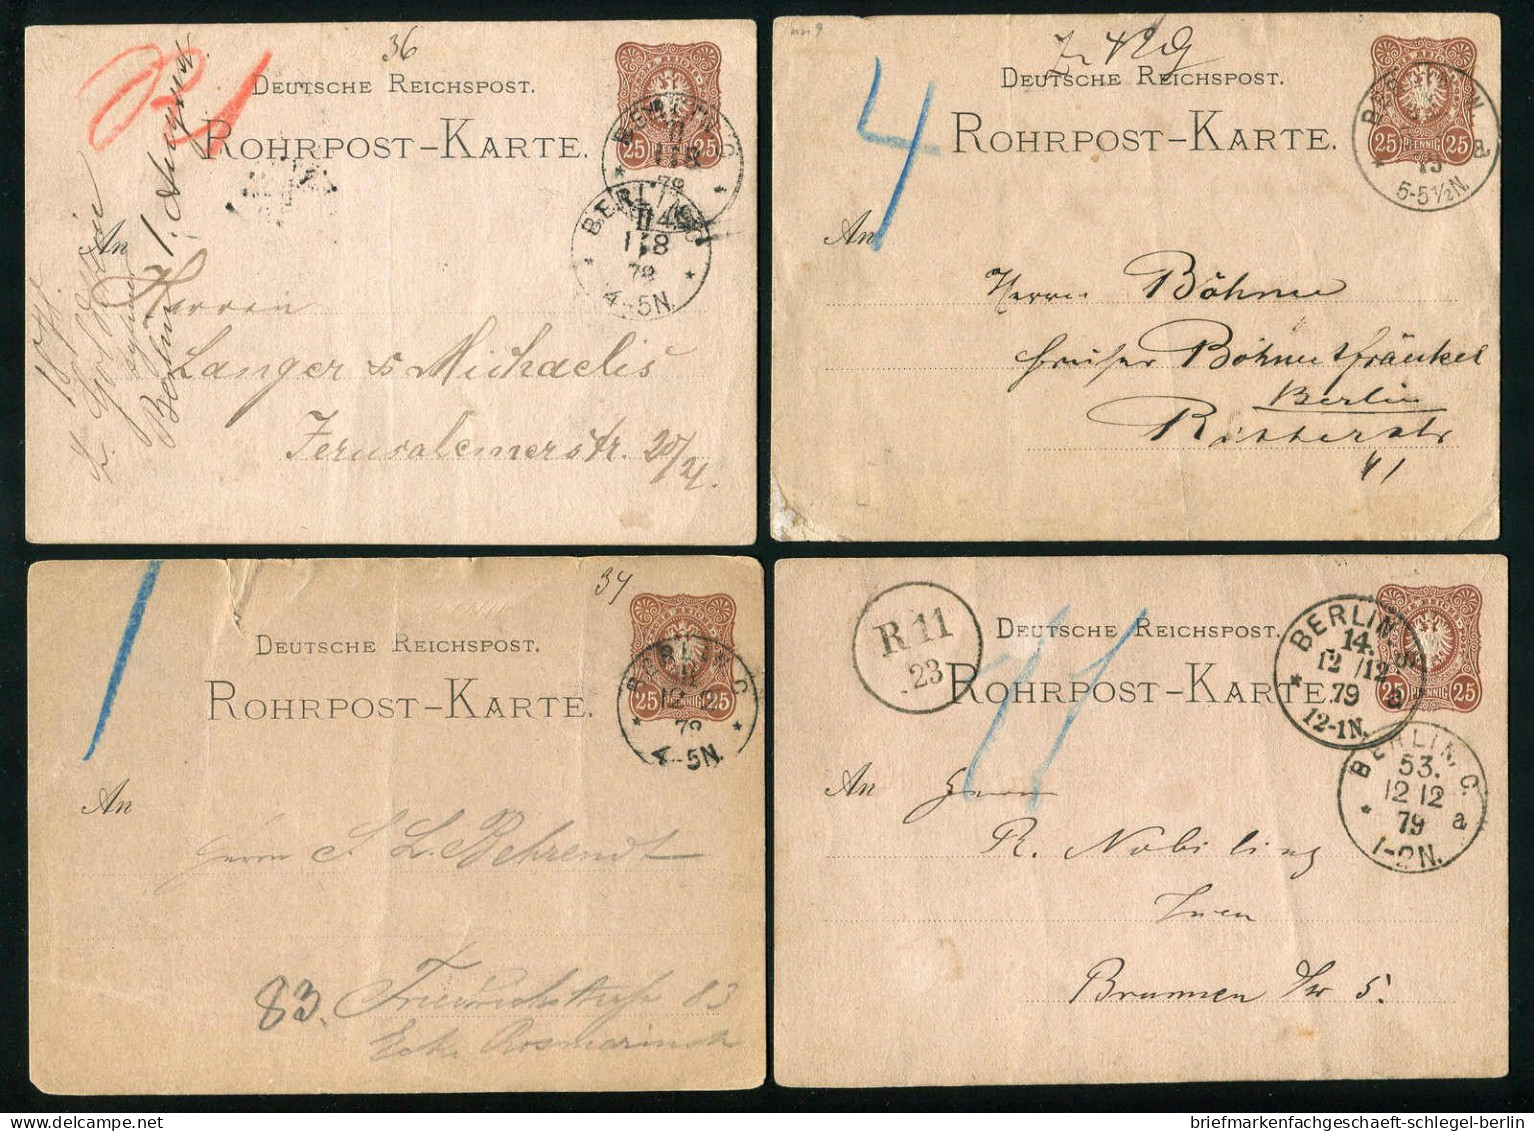 36
21
DEUTSCHE REICHSPOST.
ROHRPOST-KARTE.
25 PFENNIG 25
BERLIN
78
BERLIN
78
4-5N.
An
Herren
Langer & Michaelis
Jerusalemerstr. 20/21.
4
DEUTSCHE REICHSPOST.
ROHRPOST-KARTE.
25 PFENNIG 25
BERLIN W.
a
79
5-5½N.
An
Herrn Böhme
Berlin
Ritterstr
41
1
34
DEUTSCHE REICHSPOST.
ROHRPOST-KARTE.
25 PFENNIG 25
BERLIN, C.
12/12
78
4-5N.
An
Herrn S. L. Behrendt
83. Friedrichstraße 83
Ecke Rosmarinstr
R 11
23
11
DEUTSCHE REICHSPOST.
ROHRPOST-KARTE.
25 PFENNIG 25
BERLIN
14.
12/12
79 a
12-1N.
BERLIN, C.
53.
12 12
79 a
1-2N.
An Herrn
R. Nobiling
Brunnen Str 5.
briefmarkenfachgeschaeft-schlegel-berlin